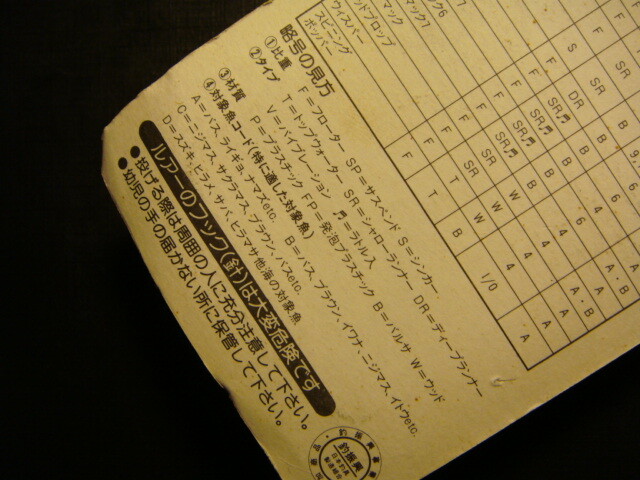 マック7
マック
ッドプロップ
ウィスパー
スピニング
ポッパー
F F F F F S
T SR SR♬ SR♬ SR♬ SR DR SR
B W W B B B B
1/0 4 4 4 6 6
A A A A A・B A・B
略号の見方
①比重 F=フローター SP=サスペンド S=シンカー
②タイプ T=トップウォーター SR=シャローランナー DR=ディープランナー
V=バイブレーション ♬=ラトル入
③材質 P=プラスチック FP=発泡プラスチック B=バルサ W=ウッド
④対象魚コード(特に適した対象魚)
A=バス、ライギョ、ナマズetc. B=バス、ブラウン、イワナ、ニジマス、イトウetc.
C=ニジマス、サクラマス、ブラウン、バスetc.
D=スズキ、ヒラメ、サバ、ヒラマサ他海の対象魚
ルアーのフック(針)は大変危険です
●投げる際は周囲の人に充分注意して下さい。
●幼児の手の届かない所に保管して下さい。
釣振興